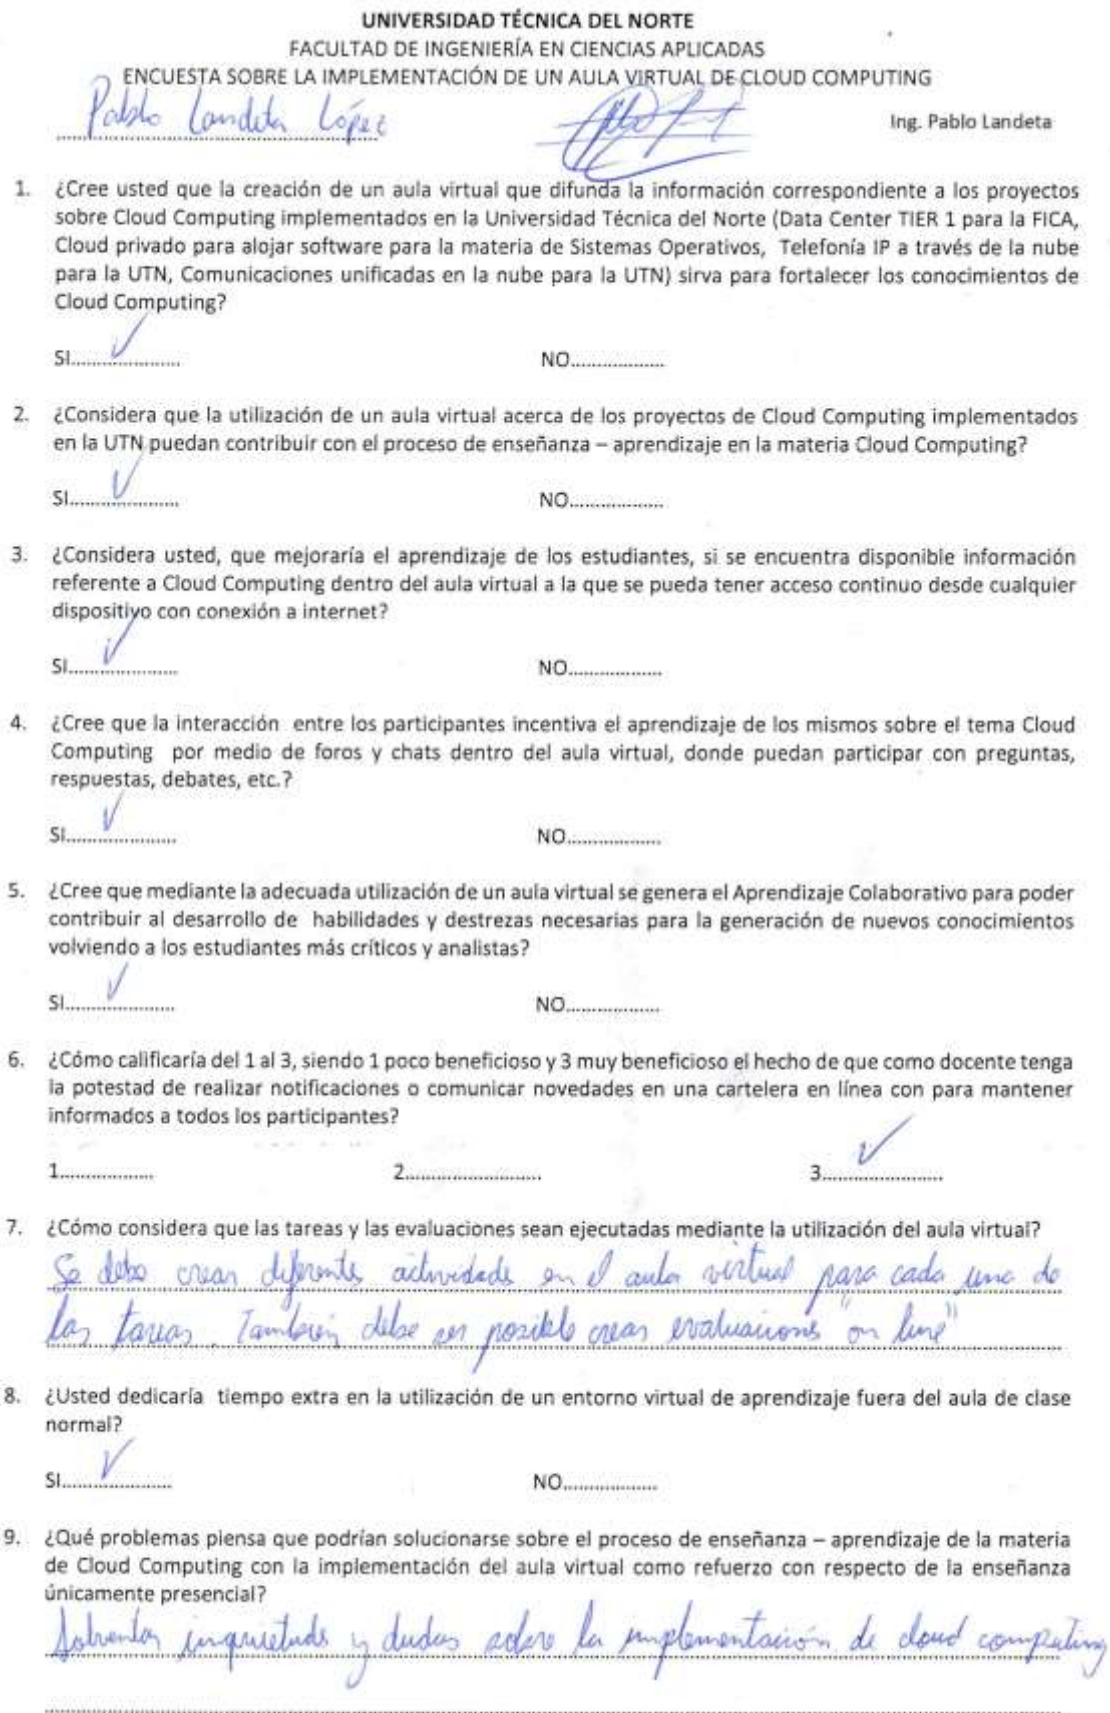 UNIVERSIDAD TÉCNICA DEL NORTE
FACULTAD DE INGENIERÍA EN CIENCIAS APLICADAS
ENCUESTA SOBRE LA IMPLEMENTACIÓN DE UN AULA VIRTUAL DE CLOUD COMPUTING
Pablo Landeta López
Ing. Pablo Landeta
1. ¿Cree usted que la creación de un aula virtual que difunda la información correspondiente a los proyectos
sobre Cloud Computing implementados en la Universidad Técnica del Norte (Data Center TIER 1 para la FICA,
Cloud privado para alojar software para la materia de Sistemas Operativos, Telefonía IP a través de la nube
para la UTN, Comunicaciones unificadas en la nube para la UTN) sirva para fortalecer los conocimientos de
Cloud Computing?
SI...................... NO...................
2. ¿Considera que la utilización de un aula virtual acerca de los proyectos de Cloud Computing implementados
en la UTN puedan contribuir con el proceso de enseñanza – aprendizaje en la materia Cloud Computing?
SI...................... NO...................
3. ¿Considera usted, que mejoraría el aprendizaje de los estudiantes, si se encuentra disponible información
referente a Cloud Computing dentro del aula virtual a la que se pueda tener acceso continuo desde cualquier
dispositivo con conexión a internet?
SI...................... NO...................
4. ¿Cree que la interacción entre los participantes incentiva el aprendizaje de los mismos sobre el tema Cloud
Computing por medio de foros y chats dentro del aula virtual, donde puedan participar con preguntas,
respuestas, debates, etc.?
SI...................... NO...................
5. ¿Cree que mediante la adecuada utilización de un aula virtual se genera el Aprendizaje Colaborativo para poder
contribuir al desarrollo de habilidades y destrezas necesarias para la generación de nuevos conocimientos
volviendo a los estudiantes más críticos y analistas?
SI...................... NO...................
6. ¿Cómo calificaría del 1 al 3, siendo 1 poco beneficioso y 3 muy beneficioso el hecho de que como docente tenga
la potestad de realizar notificaciones o comunicar novedades en una cartelera en línea con para mantener
informados a todos los participantes?
1................... 2........................... 3........................
7. ¿Cómo considera que las tareas y las evaluaciones sean ejecutadas mediante la utilización del aula virtual?
Se debe crear diferentes actividades en el aula virtual para cada una de
las tareas. También debe ser posible crear evaluaciones "on line"
8. ¿Usted dedicaría tiempo extra en la utilización de un entorno virtual de aprendizaje fuera del aula de clase
normal?
SI...................... NO...................
9. ¿Qué problemas piensa que podrían solucionarse sobre el proceso de enseñanza – aprendizaje de la materia
de Cloud Computing con la implementación del aula virtual como refuerzo con respecto de la enseñanza
únicamente presencial?
Solventar inquietudes y dudas sobre la implementación de cloud computing